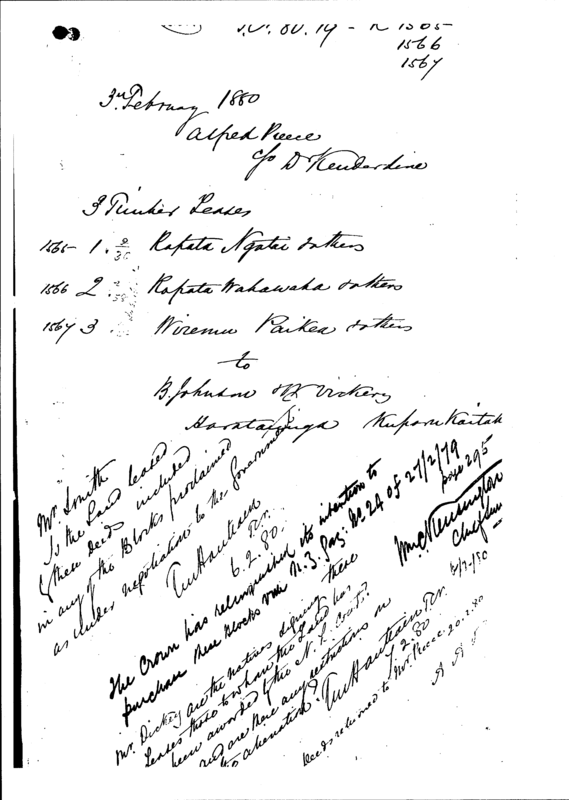 1566
1567
3rd February 1880
Alfred
c/o D Kenderdine
3 Leases
1565 1. Rapata Ngatai & others
1566 2. Ropata Wahawaha & others
1567 3 Wiremu Paikea & others
to
B. Johnson & Vickers
Mr. Smith
Is the Land leased
by these Deeds included
in any of the Blocks proclaimed
as under negotiation to the Government
6.2.80
The Crown has relinquished its intention to
purchase these Blocks vide N.Z. Gaz: No 24 of 27/2/79
page 295
Mr. Dickey are the natives signing these
Leases those to whom the Land has
been awarded by the N.L. Court?
and are there any restrictions on
to alienation?
7.2.80
Deeds returned to Mr. 20.2.80